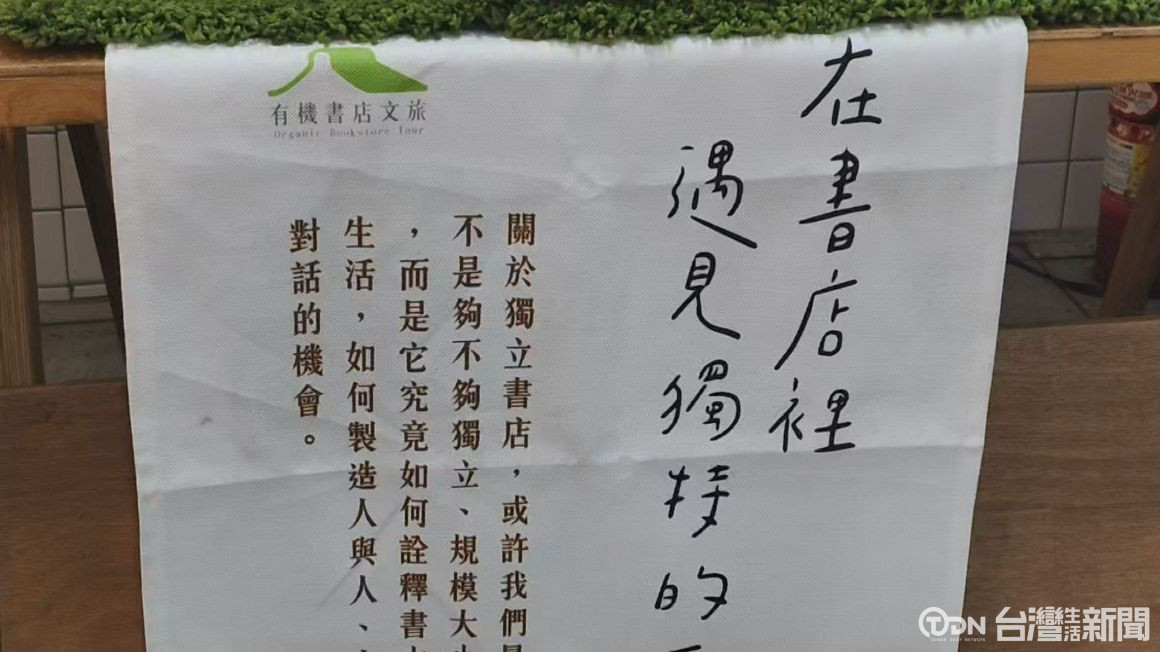 有機書店文旅
Organic Bookstore Tour
在書店裡
遇見獨特的
關於獨立書店，或許我們
不是夠不夠獨立、規模大
，而是它究竟如何詮釋書
生活，如何製造人與人、
對話的機會。
TDN 台灣生活新聞